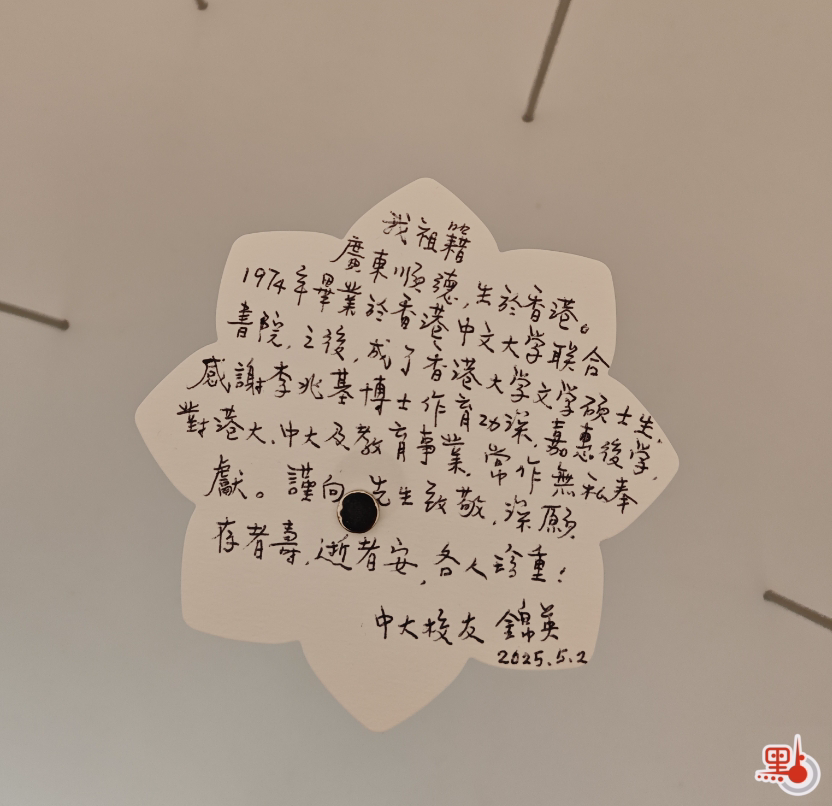 我祖籍
廣東順德,生於香港。
1974年畢業於香港中文大学联合
書院,之後,成了香港大学文学硕士生.
感謝李兆基博士作育功深,嘉惠後学,
對港大.中大及教育事業,常作無私奉
獻。謹向 先生致敬,深願
存者壽,逝者安,各人珍重!
中大校友 錦英
2025.5.2
點